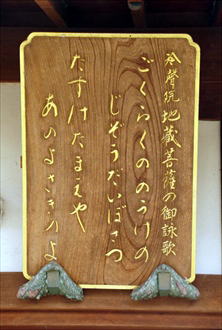 地蔵菩薩の御詠歌
ごくらくののうけの
じぞうだいぼさつ
たすけたまえや
あのよさきのよ